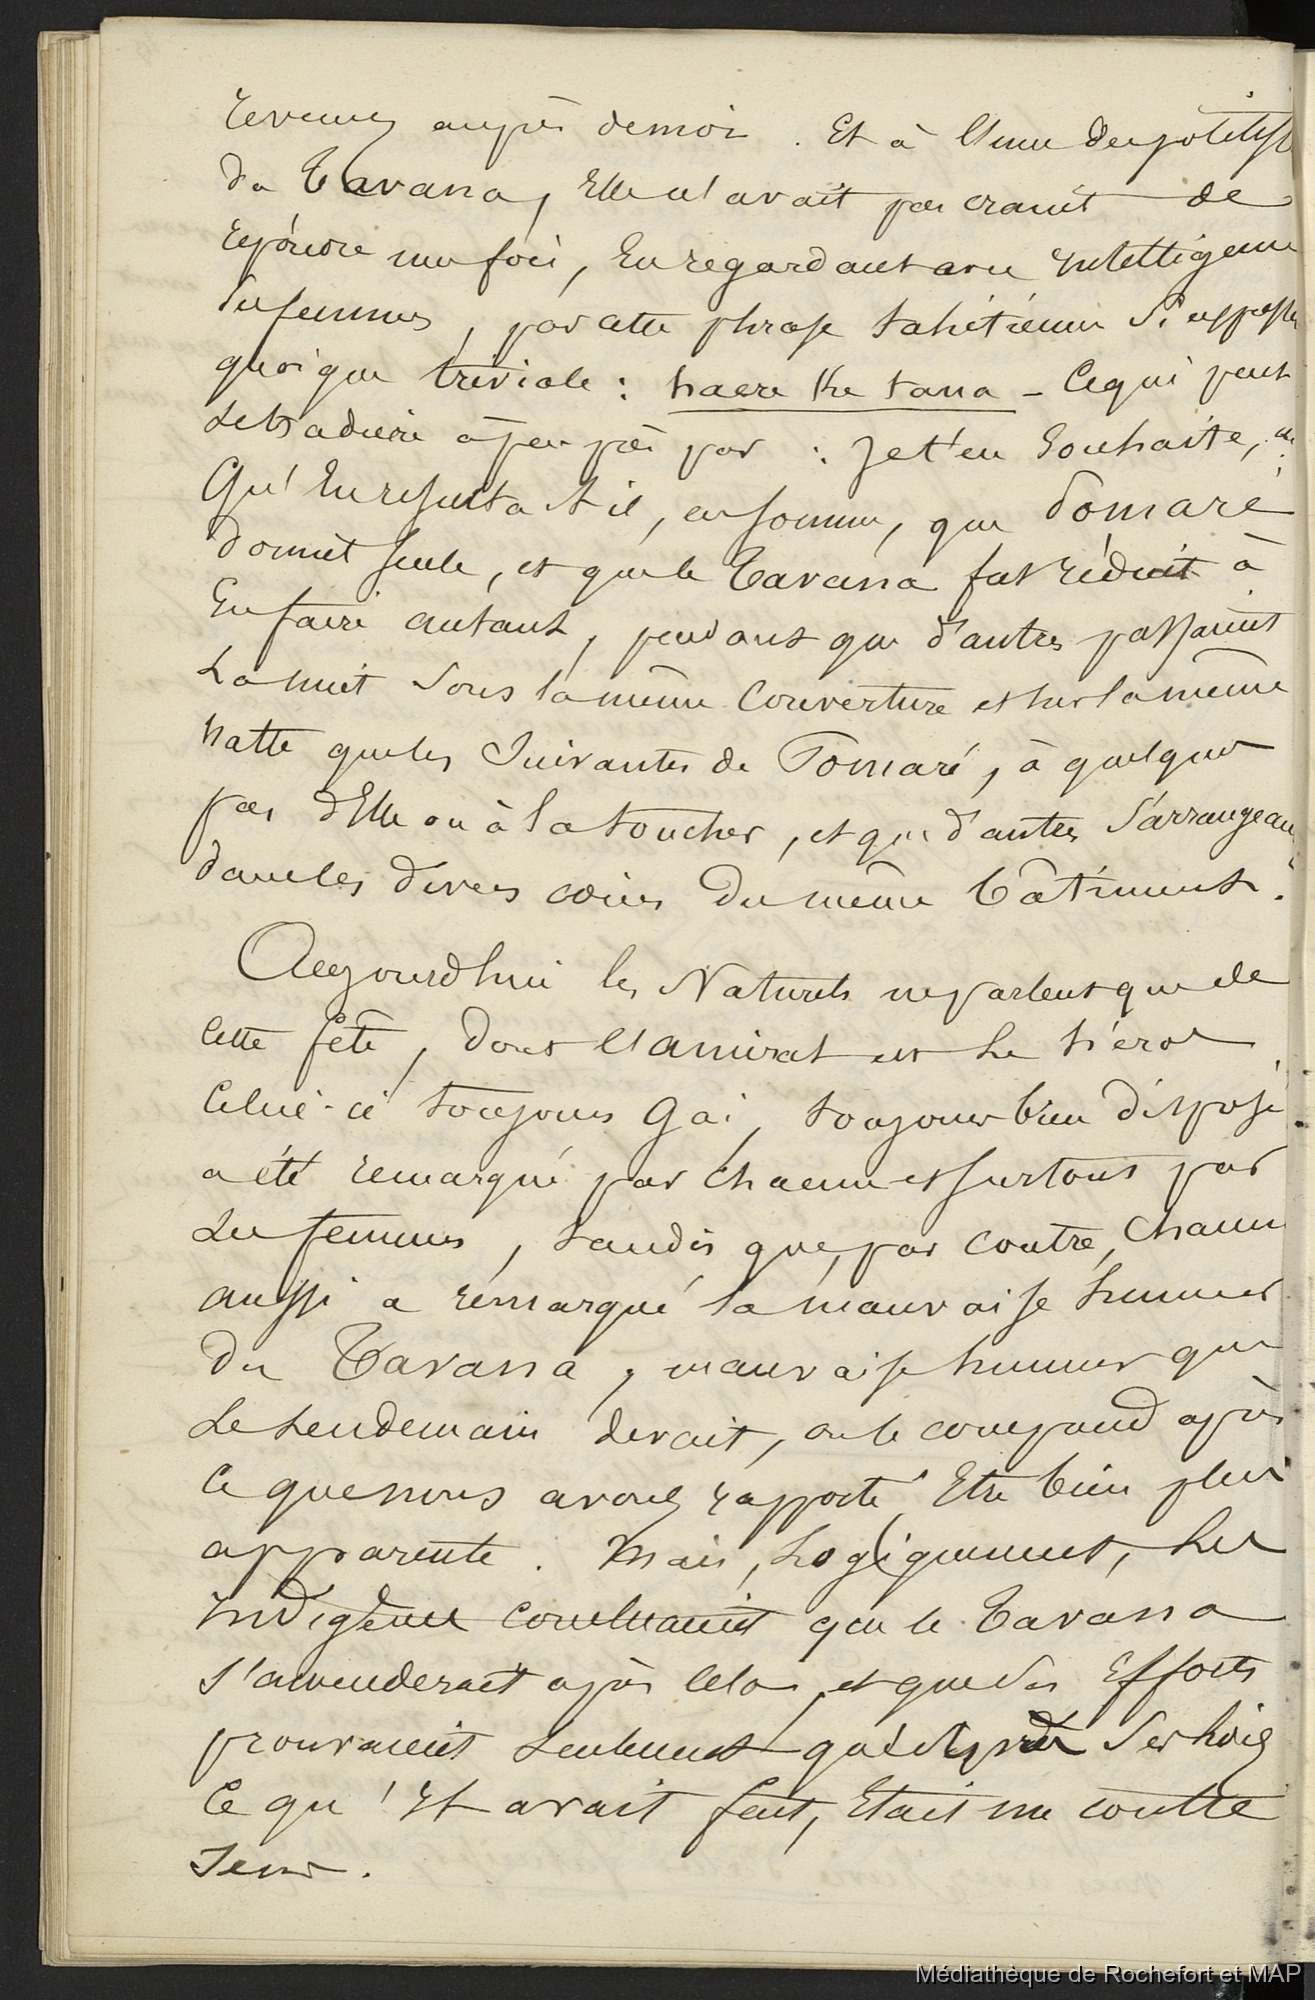 revenez auprès de moi. Et à l'une des politess
du Tavana, Elle n'avait pas craint de
répondre une fois, En regardant avec intelligence
Les femmes, par cette phrase tahitienne Si expressive
quoique triviale : haere Ke tana - Ce qui peut
se traduire à peu près par : Je t'en Souhaite,
Qu'En resulta t il, en somme, que Pomaré
dormit seule, et que le Tavana fut réduit à
En faire autant, pendant que d'autres passaient
La nuit Sous la même Couverture et sur la même
natte que les Suivantes de Pomaré, à quelques
pas d'Elle ou à la toucher, et que d'autres S'arrangeaient
dans les divers coins Du même bâtiment.
Aujourd'hui les Naturels ne parlent que de
cette fête, dont l'amiral est Le héros
Celui-ci toujours gai, toujours bien disposé
a été remarqué par chacun et surtout par
Les femmes, tandis que, par contre, Chacun
aussi a remarqué la mauvaise humeur
Du Tavana, mauvaise humeur que
Le Lendemain devait, on le comprend après
Ce que nous avons rapporté, Etre bien plus
apparente. Mais, Logiquement, Les
indigènes concluaient que le Tavana
s'amenderait après cela, et que Ses Efforts
prouvaient Seulement que
Ce qu'il avait fait, Etait un contre
Sens.
Médiathèque de Rochefort et MAP